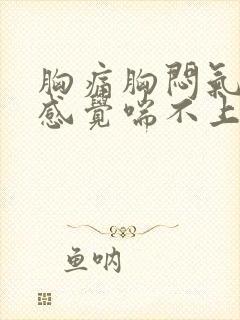 胸痛胸悶氣
感覺喘不上
鱼呐